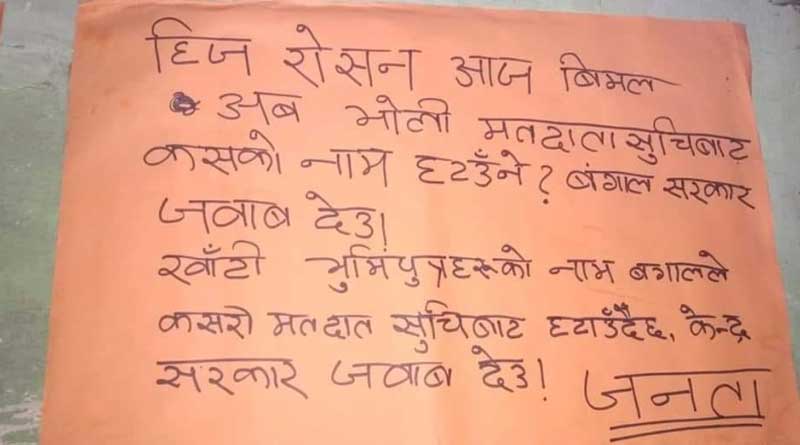 हिज रोसन आज बिमल
अब भोली मतदाता सुचिबाट
कसको नाम हटाउँने? बंगाल सरकार
जवाब देउ।
खाँटी भुमिपुत्रहरूको नाम बगालले
कसरी मतदात सुचिबाट हटाउँदैछ, केन्द्र
सरकार जवाब देउ!
जनता